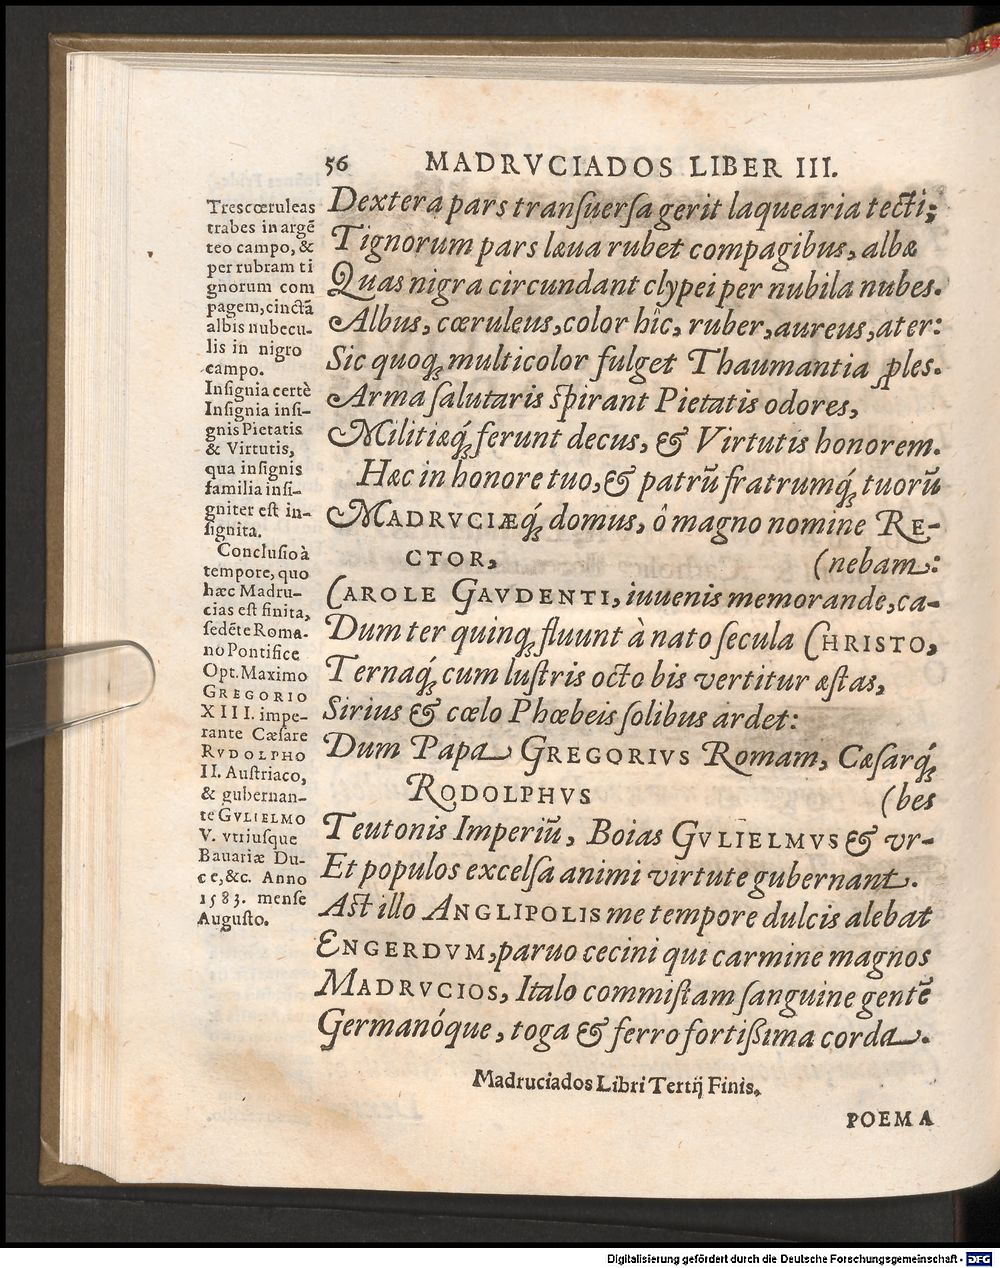 56 MADRVCIADOS LIBER III.
Dextera pars transuersa gerit laquearia tecti;
Tignorum pars læua rubet compagibus, albæ
Quas nigra circundant clypei per nubila nubes.
Albus, cœruleus, color hîc, ruber, aureus, ater:
Sic quoqꝫ multicolor fulget Thaumantia ꝓles.
Arma salutaris spirant Pietatis odores,
Militiæq́ꝫ ferunt decus, & Virtutis honorem.
Hæc in honore tuo, & patrū fratrumq́ꝫ tuorū
MADRVCIÆq́ꝫ domus, ô magno nomine RE-
CTOR, (nebam:
CAROLE GAVDENTI, iuuenis memorande, ca-
Dum ter quinqꝫ fluunt à nato secula CHRISTO,
Ternaq́ꝫ cum lustris octo bis vertitur æstas,
Sirius & cœlo Phœbeis solibus ardet:
Dum Papa GREGORIVS Romam, Cæsarq́ꝫ
RODOLPHVS (bes
Teutonis Imperiū, Boias GVLIELMVS & vr-
Et populos excelsa animi virtute gubernant.
Ast illo ANGLIPOLIS me tempore dulcis alebat
ENGERDVM, paruo cecini qui carmine magnos
MADRVCIOS, Italo commistam sanguine gentē
Germanóque, toga & ferro fortißima corda.
Madruciados Libri Tertij Finis.
POEMA
Tres cœruleas
trabes in argē
teo campo, &
per rubram ti
gnorum com
pagem, cinctā
albis nubecu-
lis in nigro
campo.
Insignia certè
Insignia insi-
gnis Pietatis
& Virtutis,
qua insignis
familia insi-
gniter est in-
signita.
Conclusio à
tempore, quo
hæc Madru-
cias est finita,
sedēte Roma-
no Pontifice
Opt. Maximo
GREGORIO
XIII. impe-
rante Cæsare
RVDOLPHO
II. Austriaco,
& gubernan-
te GVLIELMO
V. vtriusque
Bauariæ Du-
ce, &c. Anno
1583. mense
Augusto.
Digitalisierung gefördert durch die Deutsche Forschungsgemeinschaft - DFG